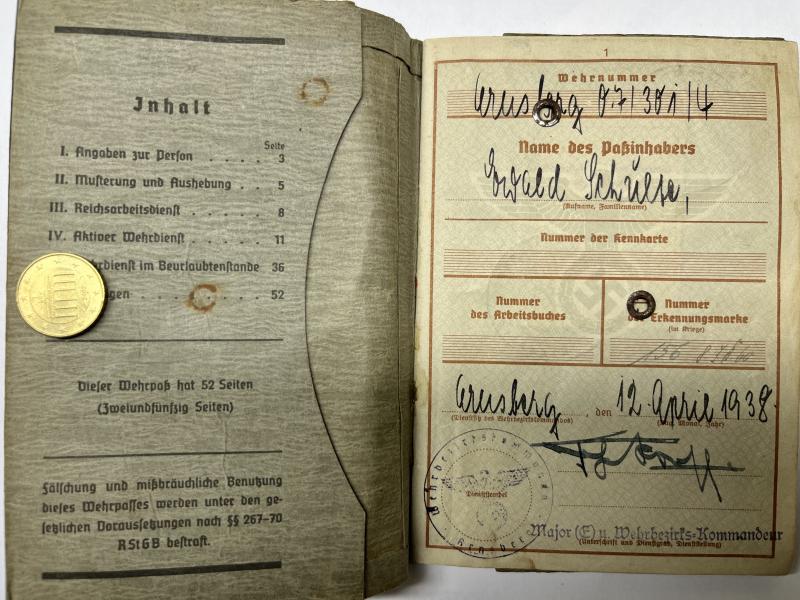 Inhalt
Seite
I. Angaben zur Person . . . . 3
II. Musterung und Aushebung . . 5
III. Reichsarbeitsdienst . . . . . 8
IV. Aktiver Wehrdienst . . . . . 11
hrdienst im Beurlaubtenstande 36
gen . . . . . . . . 52
Dieser Wehrpaß hat 52 Seiten
(Zweiundfünfzig Seiten)
Fälschung und mißbräuchliche Benutzung
dieses Wehrpasses werden unter den ge-
setzlichen Voraussetzungen nach §§ 267-70
RStGB bestraft.
1
Wehrnummer
Arnsberg 07/301/4
Name des Paßinhabers
Ewald Schulte,
(Rufname, Familienname)
Nummer der Kennkarte
Nummer
des Arbeitsbuches
Nummer
der Erkennungsmarke
(im Kriege)
156
Arnsberg, den 12. April 1938.
(Dienstsitz des Wehrbezirkskommandos) (Tag, Monat, Jahr)
Wehrbezirkskommando
Dienststempel
Arnsberg
Major (E) u. Wehrbezirks-Kommandeur
(Unterschrift und Dienstgrad, Dienststellung)